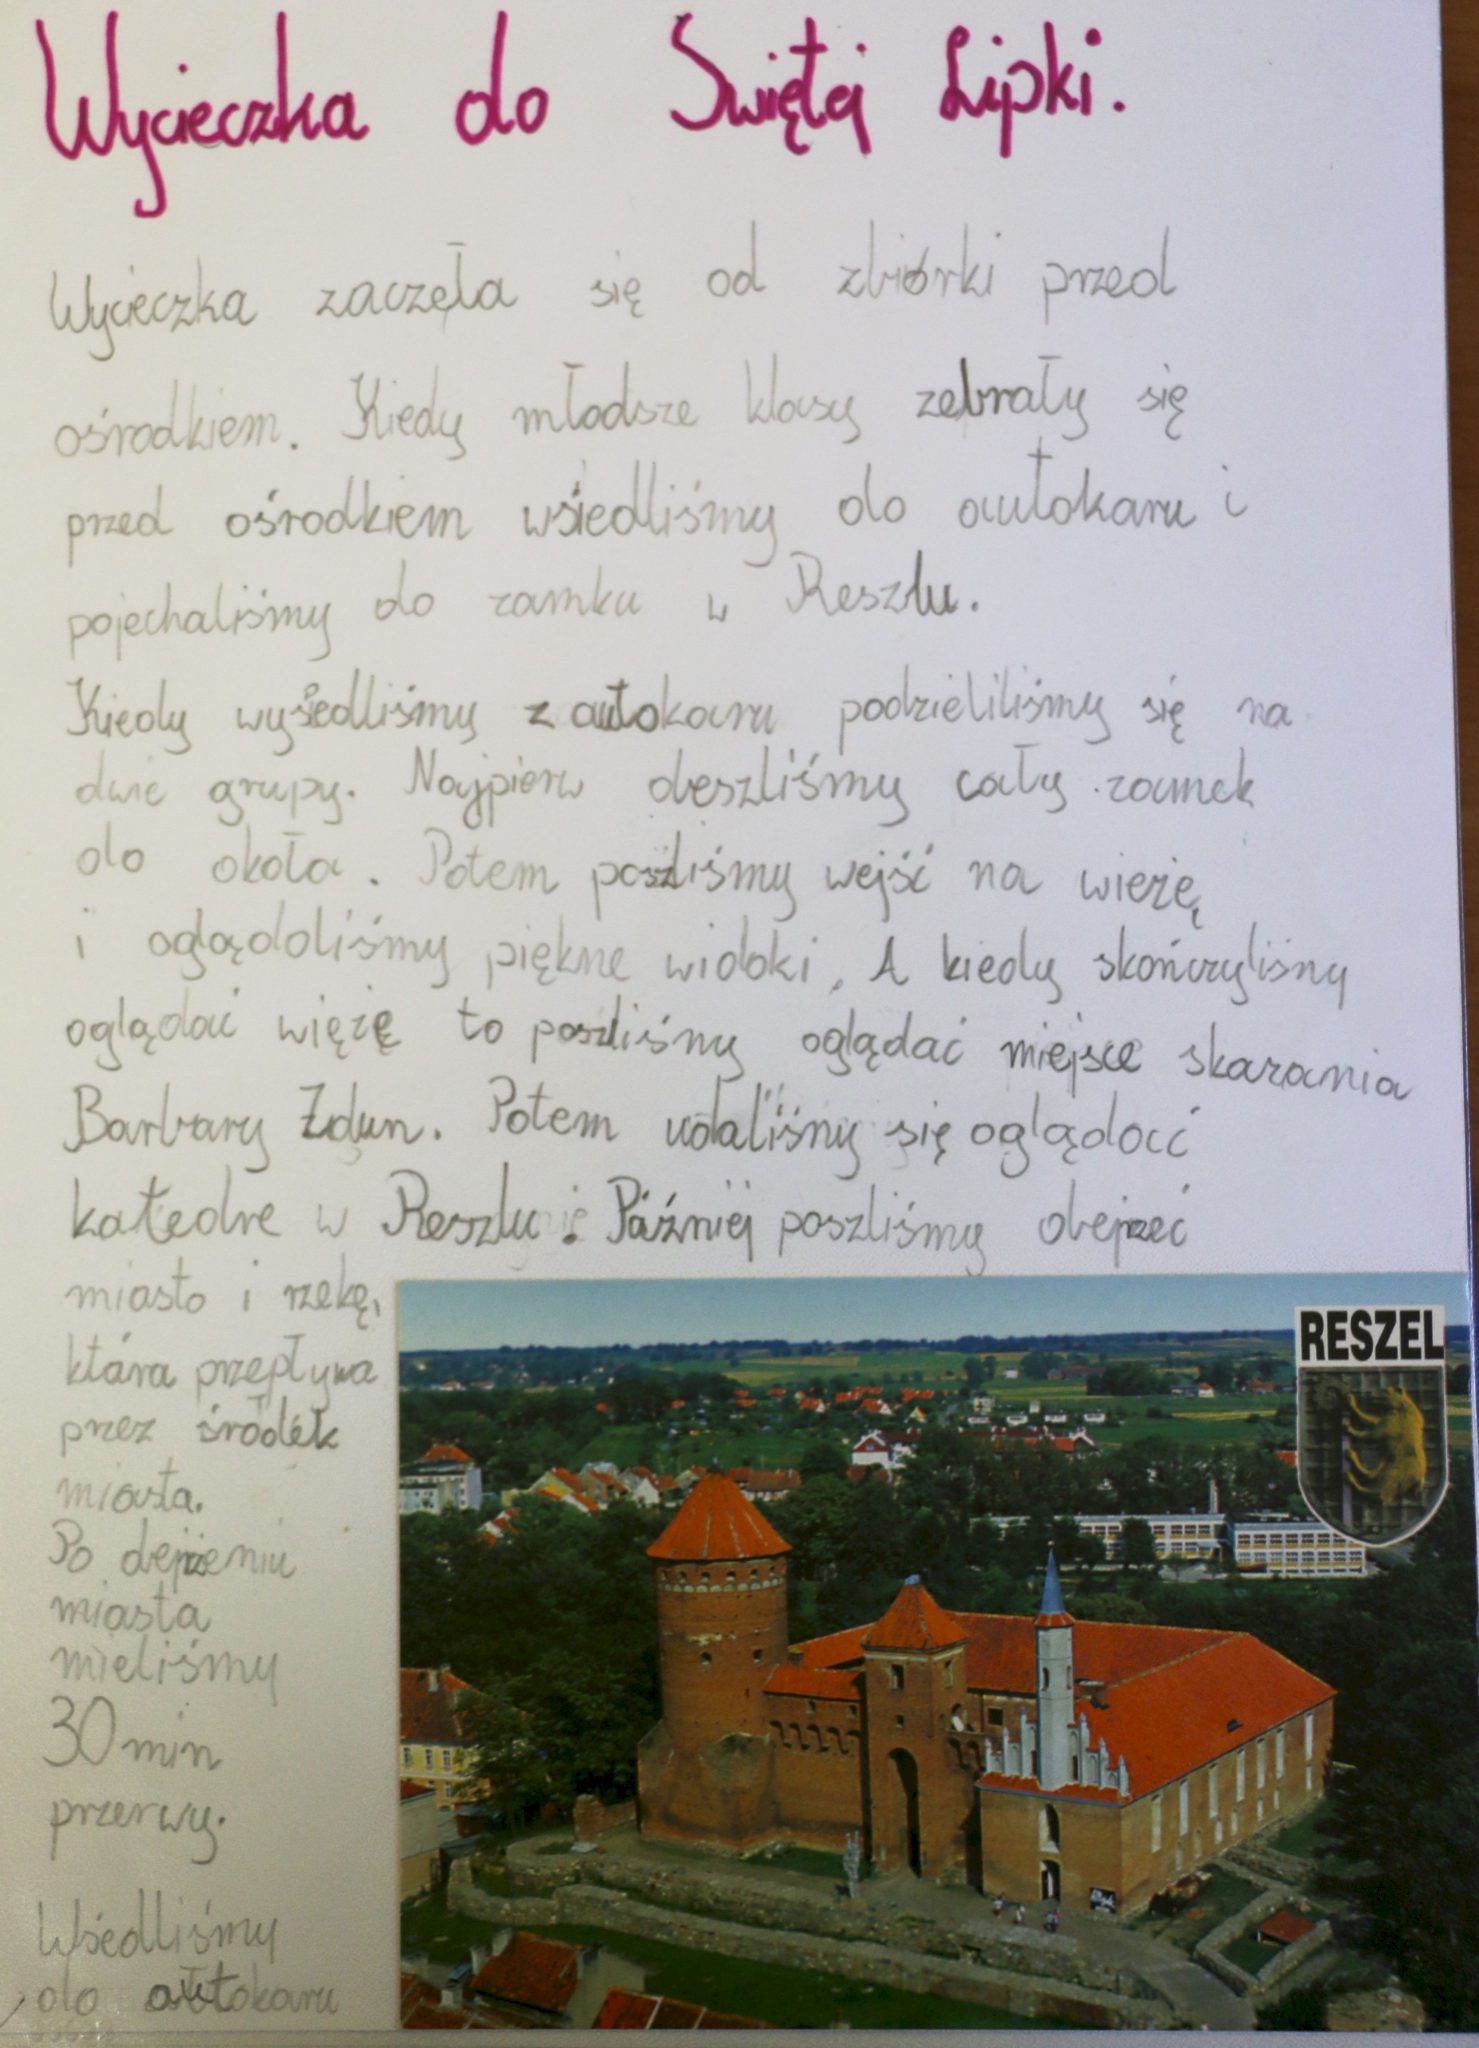 Wycieczka do Swiętej Lipki.
Wycieczka zaczęła się od zbiórki przed
ośrodkiem. Kiedy młodsze klasy zebrały się
przed ośrodkiem wsiedliśmy do autokaru i
pojechaliśmy do zamku w Reszlu.
Kiedy wysiedliśmy z autokaru podzieliliśmy się na
dwie grupy. Najpierw obeszliśmy cały zamek
do okoła. Potem poszliśmy wejść na wieżę,
i oglądoliśmy piękne widoki. A kiedy skończyliśmy
oglądać więżę to poszliśmy oglądać miejsce skazania
Barbary Zdun. Potem udaliśmy się oglądać
katedre w Reszlu. Póżniej poszliśmy obejrzeć
miasto i rzekę,
która przepływa
przez środek
miasta.
Po obejrzeniu
miasta
mieliśmy
30 min
przerwy.
Wśedliśmy
do autokaru
RESZEL